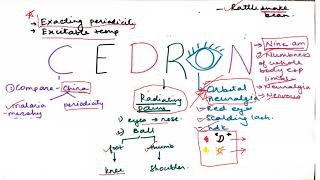 Exacting periodicity
Excitable temp
Rattle snake
bean.
CEDRON
Nine am
Numbness
of whole
body esp
limbs
Neuralgia
Nervous
① Compare - China
malaria periodicity
marshy
Radiating
pains
① eyes → nose
② Ball
foot thumb
knee shoulder
Orbital
neuralgia
Red eye
Scalding lach.
hdk
"D"